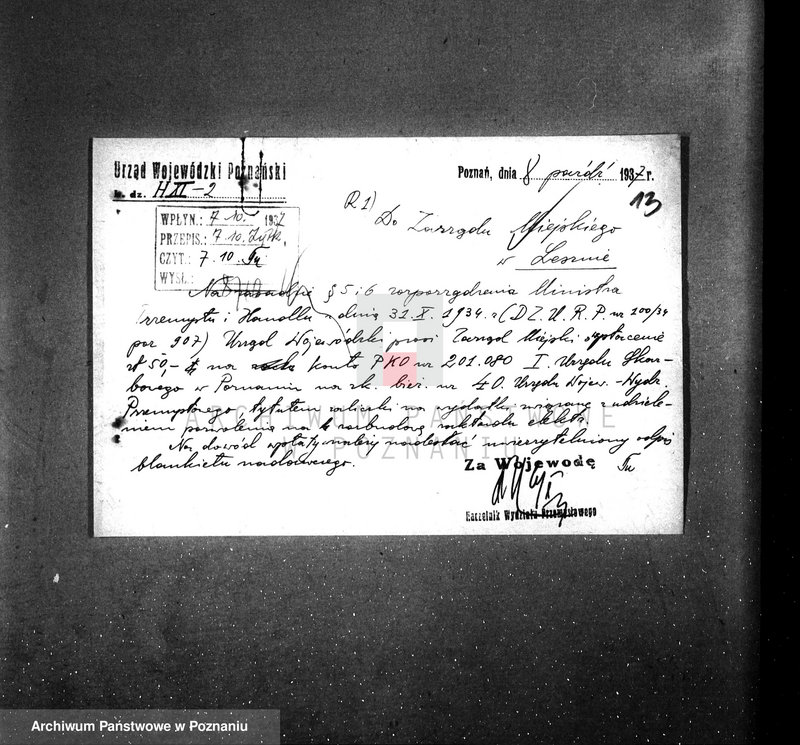 Urząd Wojewódzki Poznański
L. dz. HXI-2
Poznań, dnia 8 paźdź 1937 r.
13
WPŁYN.: 7 10. 1937
PRZEPIS.: 7 10.
CZYT.: 7.10.
WYSŁ.:
R 1)
Do Zarządu Miejskiego
w Lesznie
§ 5 i 6 rozporządzenia Ministra
Przemysłu i Handlu z dnia 31. X. 1934 r. (DZ. U. R. P. nr 100/34
poz 907) Urząd Wojewódzki prosi Zarząd Miejski o wpłacenie
zł 50,- na konto PKO nr 201.080 I. Urzędu Skar-
bowego w Poznaniu na rk. bież. nr 40. Urzędu Wojew. - Wydz.
Przemysłowego, tytułem zaliczki na wydatki związane z udziele-
niem pozwolenia na rozbudowę zakładu elektr.
Na dowód wpłaty należy nadesłać uwierzytelniony odpis
blankietu nadawczego.
Za Wojewodę
Naczelnik Wydziału Przemysłowego
ARCHIWUM PAŃSTWOWE
POZNANIU
Archiwum Państwowe w Poznaniu